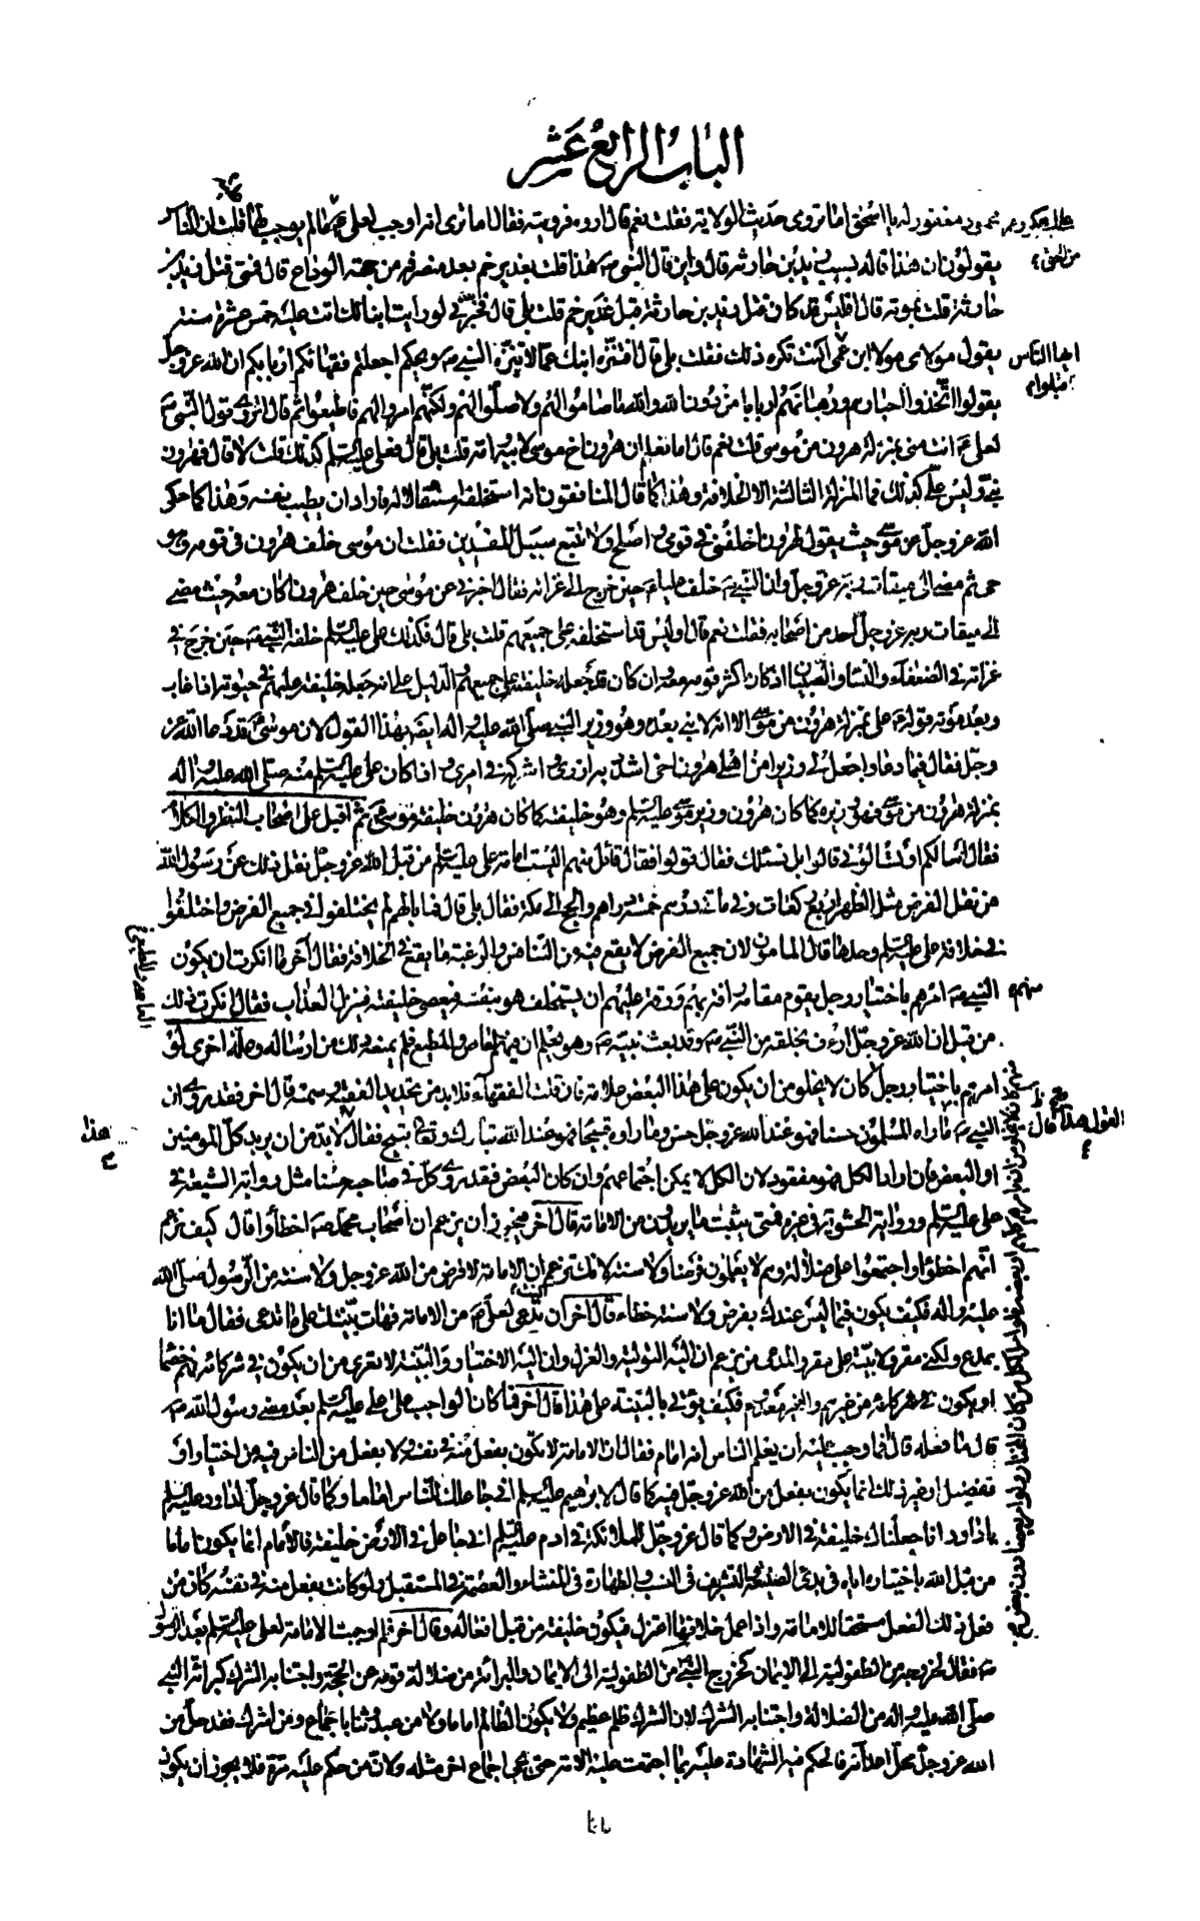 الباب الرابع عشر
يا اسحق اما تروى حديث الولاية فقلت نعم قال اروه فرويته فقال اما ترى انه اوجب لعلى على ما لم يوجب لهما قلت ان الناس
يقولون ان هذا قاله بسبب زيد بن حارثه قال واين قال النبى هذا قلت بغدير خم بعد منصرفه من حجة الوداع قال فمتى قتل زيد بن
حارثة قلت بموته قال افليس قد كان قتل زيد بن حارثة قبل غدير خم قلت بلى قال فخبرنى لو رايت ابنا لك اتت عليه خمس عشرة سنة
يقول مولاى مولا ابن عمى اكنت تكره ذلك فقلت بلى قال افتنزه ابنك عما لا تنزه النبى ويحكم اجعلتم فقهائكم اربابكم ان الله عز وجل
ايها الناس
يقول اتخذوا احبارهم ورهبانهم اربابا من دون الله والله ما صاموا لهم ولا صلوا لهم ولكنهم امروا لهم فاطيعوا ثم قال اتروى قول النبى
لعلى انت منى بمنزلة هرون من موسى قلت نعم قال اما تعلم ان هرون اخ موسى لابيه وامه قلت بلى قال فعلى عليه السلم كذلك قلت لا قال فهرون
نبى وليس على كذلك فما المنزلة الثالثة الا الخلافة وهذا كما قال المنافقون انه استخلفه استثقالا له فاراد ان يطيب نفسه وهذا كما حكى
الله عز وجل عن موسى حيث يقول لهرون اخلفنى فى قومى واصلح ولا تتبع سبيل المفسدين فقلت ان موسى خلف هرون فى قومه وهو
حى ثم مضى الى ميقات ربه عز وجل وان النبى خلف عليا حين خرج الى غزاته فقال اخبرنى عن موسى حين خلف هرون اكان معه حيث مضى
الى ميقات ربه عز وجل احد من اصحابه فقلت نعم قال اوليس قد استخلفه على جميعهم قلت بلى قال فكذلك على عليه السلم خلفه النبى حين خرج فى
غزاته فى الضعفآء والنساء والصبيان اذ كان اكثر قومه معه وان كان قد جعله خليفة على جميعهم والدليل على انه جعله خليفة عليهم فى حيوته اذا غاب
وبعد موته قوله على بمنزلة هرون من موسى الا انه لا نبى بعدى وهو وزير النبى صلى الله عليه واله ايضا بهذا القول لان موسى قد دعا الله عز
وجل فقال فيما دعا واجعل لى وزيرا من اهلى هرون اخى اشدد به ازرى واشركه فى امرى واذا كان على عليه السلم منه صلى الله عليه واله
بمنزلة هرون من موسى فهو وزيره كما كان هرون وزير موسى عليه السلم وهو خليفته كما كان هرون خليفة موسى ثم اقبل على اصحاب النظر والكلام
فقال اسالكم او تسالونى قالوا بل نسئلك فقال قولوا فقال قائل منهم اليست امامة على عليه السلم من قبل الله عز وجل نقل ذلك عن رسول الله
من نقل الفرض مثل الظهر اربع ركعات وفى مائتى درهم خمسة دراهم والحج الى مكة فقال بلى قال فما بالهم لم يختلفوا فى جميع الفرض واختلفوا
فى خلافة على عليه السلم وحدها قال المامون لان جميع الفرض لا يقع فيه من التنافس والرغبة ما يقع فى الخلافة فقال آخر ما انكرت ان يكون
النبى امرهم باختيار رجل يقوم مقامه رافة بهم ورقة عليهم ان يستخلف هو بنفسه فيعصى خليفته فينزل العذاب فقال انكرت ذلك
منهم
من قبل ان الله عز وجل ارءف بخلقه من النبى وقد بعث نبيه وهو يعلم ان فيهم العاصى والمطيع فلم يمنعه ذلك من ارساله وعلة اخرى لو
امرهم باختيار رجل كان لا يخلو من ان يكون على هذا البعض علامة فان قلت الفقهآء فلا بد من تحديد الفقيه وسمته قال اخر فقد روى ان
النبى قال ما راه المسلمون حسنا فهو عند الله عز وجل حسن وما راوه قبيحا فهو عند الله تبارك وتعالى قبيح فقال لا بد من ان يريد كل المومنين
هذا
او البعض فان اراد الكل فهو مفقود لان الكل لا يمكن اجتماعهم وان كان البعض فقد روى كل فى صاحبه حسنا مثل رواية الشيعة فى
على عليه السلم ورواية الحشوية فى غيره فمتى يثبت ما يريدون من الامامة قال آخر فيجوز ان يزعم ان اصحاب محمد اخطأوا قال كيف نزعم
انهم اخطؤا واجتمعوا على ضلالة وهم لا يعلمون فرضا ولا سنة لانك تزعم ان الامامة لا فرض من الله عز وجل ولا سنة من الرسول صلى الله
عليه واله فكيف يكون فيما ليس عندك بفرض ولا سنة خطاء قال آخر ان تدعى لعلى من الامامة فهات بينتك على ما تدعى فقال ما انا
بمدع ولكنى مقر ولا بينة على مقر والمدعى من يزعم ان اليه التولية والعزل وان اليه الاختيار والبينة لا تعرى من ان يكون فى شركائه فهم خصما
او يكون من غيرهم والغير معدوم فكيف يؤتى بالبينة على هذا قال آخر فما كان الواجب على على عليه السلم بعد مضى رسول الله
قال ما فعله قال فما وجب عليه ان يعلم الناس انه امام فقال ان الامامة لا تكون بفعل منه فى نفسه ولا بفعل من الناس فيه من اختيار او
تفضيل او غير ذلك انما يكون بفعل من الله عز وجل فيه كما قال لابرهيم عليه السلم انى جاعلك للناس اماما وكما قال عز وجل لداود عليه السلم
يا داود انا جعلناك خليفة فى الارض وكما قال عز وجل للملائكة فى ادم عليه السلم انى جاعل فى الارض خليفة فالامام انما يكون اماما
من قبل الله باختياره اياه فى بدئ الصنيعة والتشريف فى النسب والطهارة فى المنشاء والعصمة فى المستقبل ولو كانت بفعل منه فى نفسه كان من
فعل ذلك الفعل مستحقا للامامة واذا عمل خلافها اعتزل فيكون خليفة من قبل افعاله وقال آخر فلم اوجبت الامامة لعلى عليه السلم بعد الرسول
فقال لخروجه من الطفولية الى الايمان كخروج النبى من الطفولية الى الايمان والبرائة من ضلالة قومه عن الحجة واجتنابه الشرك كبرائة النبى
صلى الله عليه واله من الضلالة واجتنابه الشرك لان الشرك ظلم عظيم ولا يكون الظالم اماما ولا من عبد وثنا باجماع ومن اشرك فقد حل من
الله عز وجل محل اعدائه فالحكم فيه الشهادة عليه بما اجتمعت عليه الامة حتى يجئ اجماع اخر مثله ولان من حكم عليه مرة فلا يجوز ان يكون